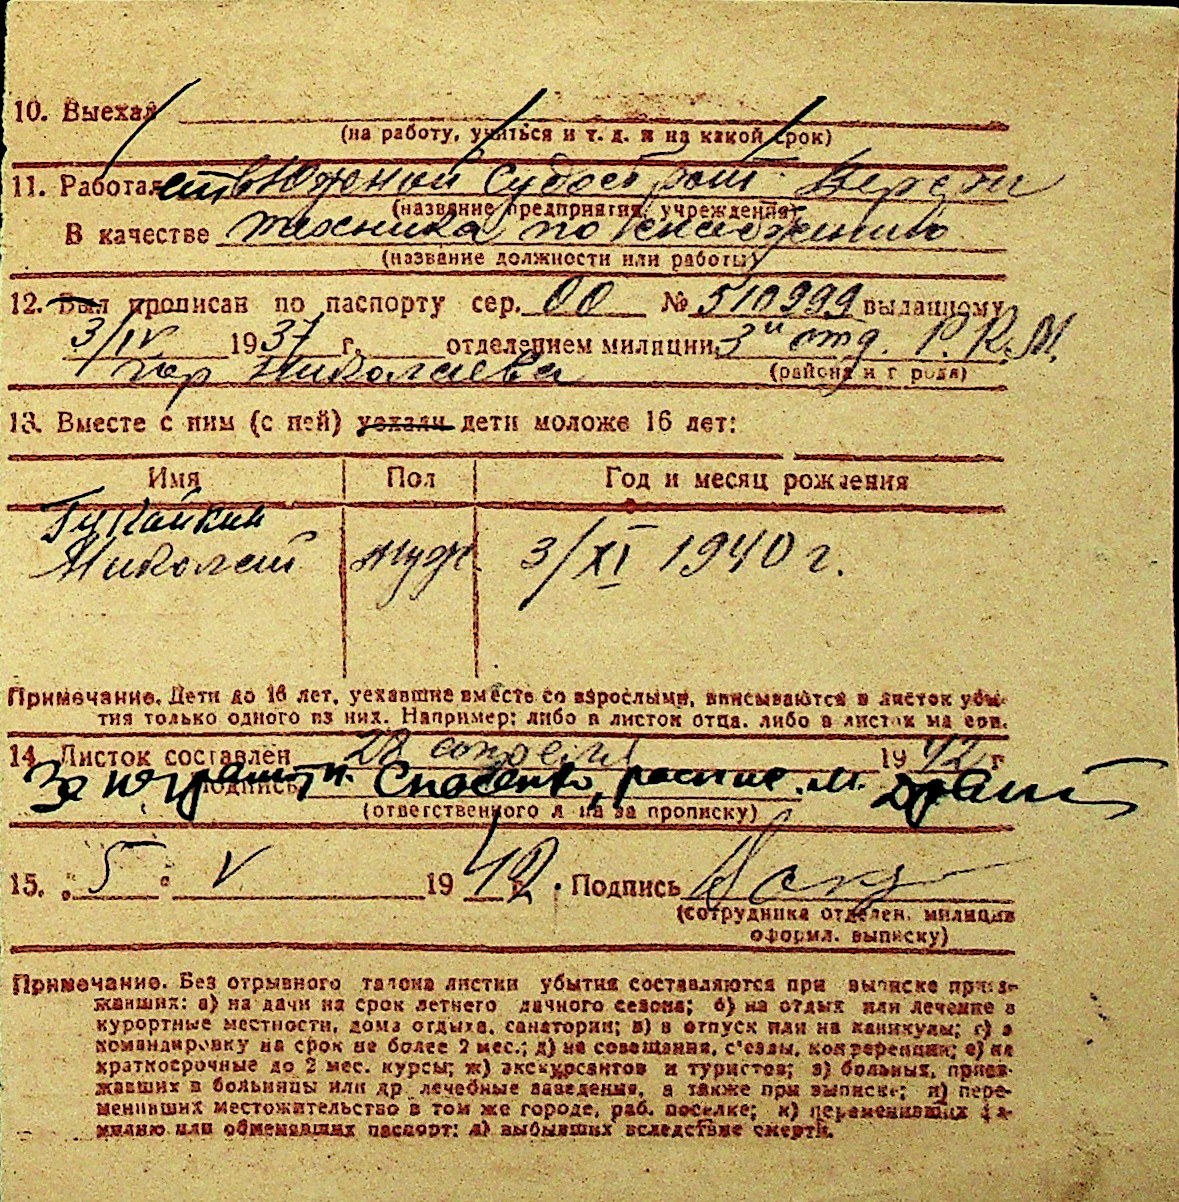 10. Выехал
(на работу, учиться и т. д. и на какой срок)
11. Работает в Южной Судострои Верфи
(название предприятия, учреждения)
В качестве техника по снабжению
(название должности или работы)
12. Был прописан по паспорту сер. 00 № 510999 выданному
3/IV 1937 г. отделением милиции 3м отд. Р.К.М.
гор Николаева (района и города)
13. Вместе с ним (с ней) уехали дети моложе 16 лет:
Имя Пол Год и месяц рождения
Николай муж 3/XI 1940 г.
Примечание. Дети до 16 лет, уехавшие вместе со взрослыми, вписываются в листок убы-
тия только одного из них. Например: либо в листок отца, либо в листок матери.
14. Листок составлен 28 апреля 1942 г
Подпись Спасенко,
(ответственного л-ца за прописку)
15. „5" V 1942 г. Подпись
(сотрудника отделен. милиции
оформл. выписку)
Примечание. Без отрывного талона листки убытия составляются при выписке приез-
жавших: а) на дачи на срок летнего дачного сезона; б) на отдых или лечение в
курортные местности, дома отдыха, санатории; в) в отпуск или на каникулы; г) в
командировку на срок не более 2 мес.; д) на совещания, с'езды, конференции; е) на
краткосрочные до 2 мес. курсы; ж) экскурсантов и туристов; з) больных, приез-
жавших в больницы или др. лечебные заведения, а также при выписке; и) пере-
менивших местожительство в том же городе, раб. поселке; к) переменивших фа-
милию или обменявших паспорт; л) выбывших вследствие смерти.